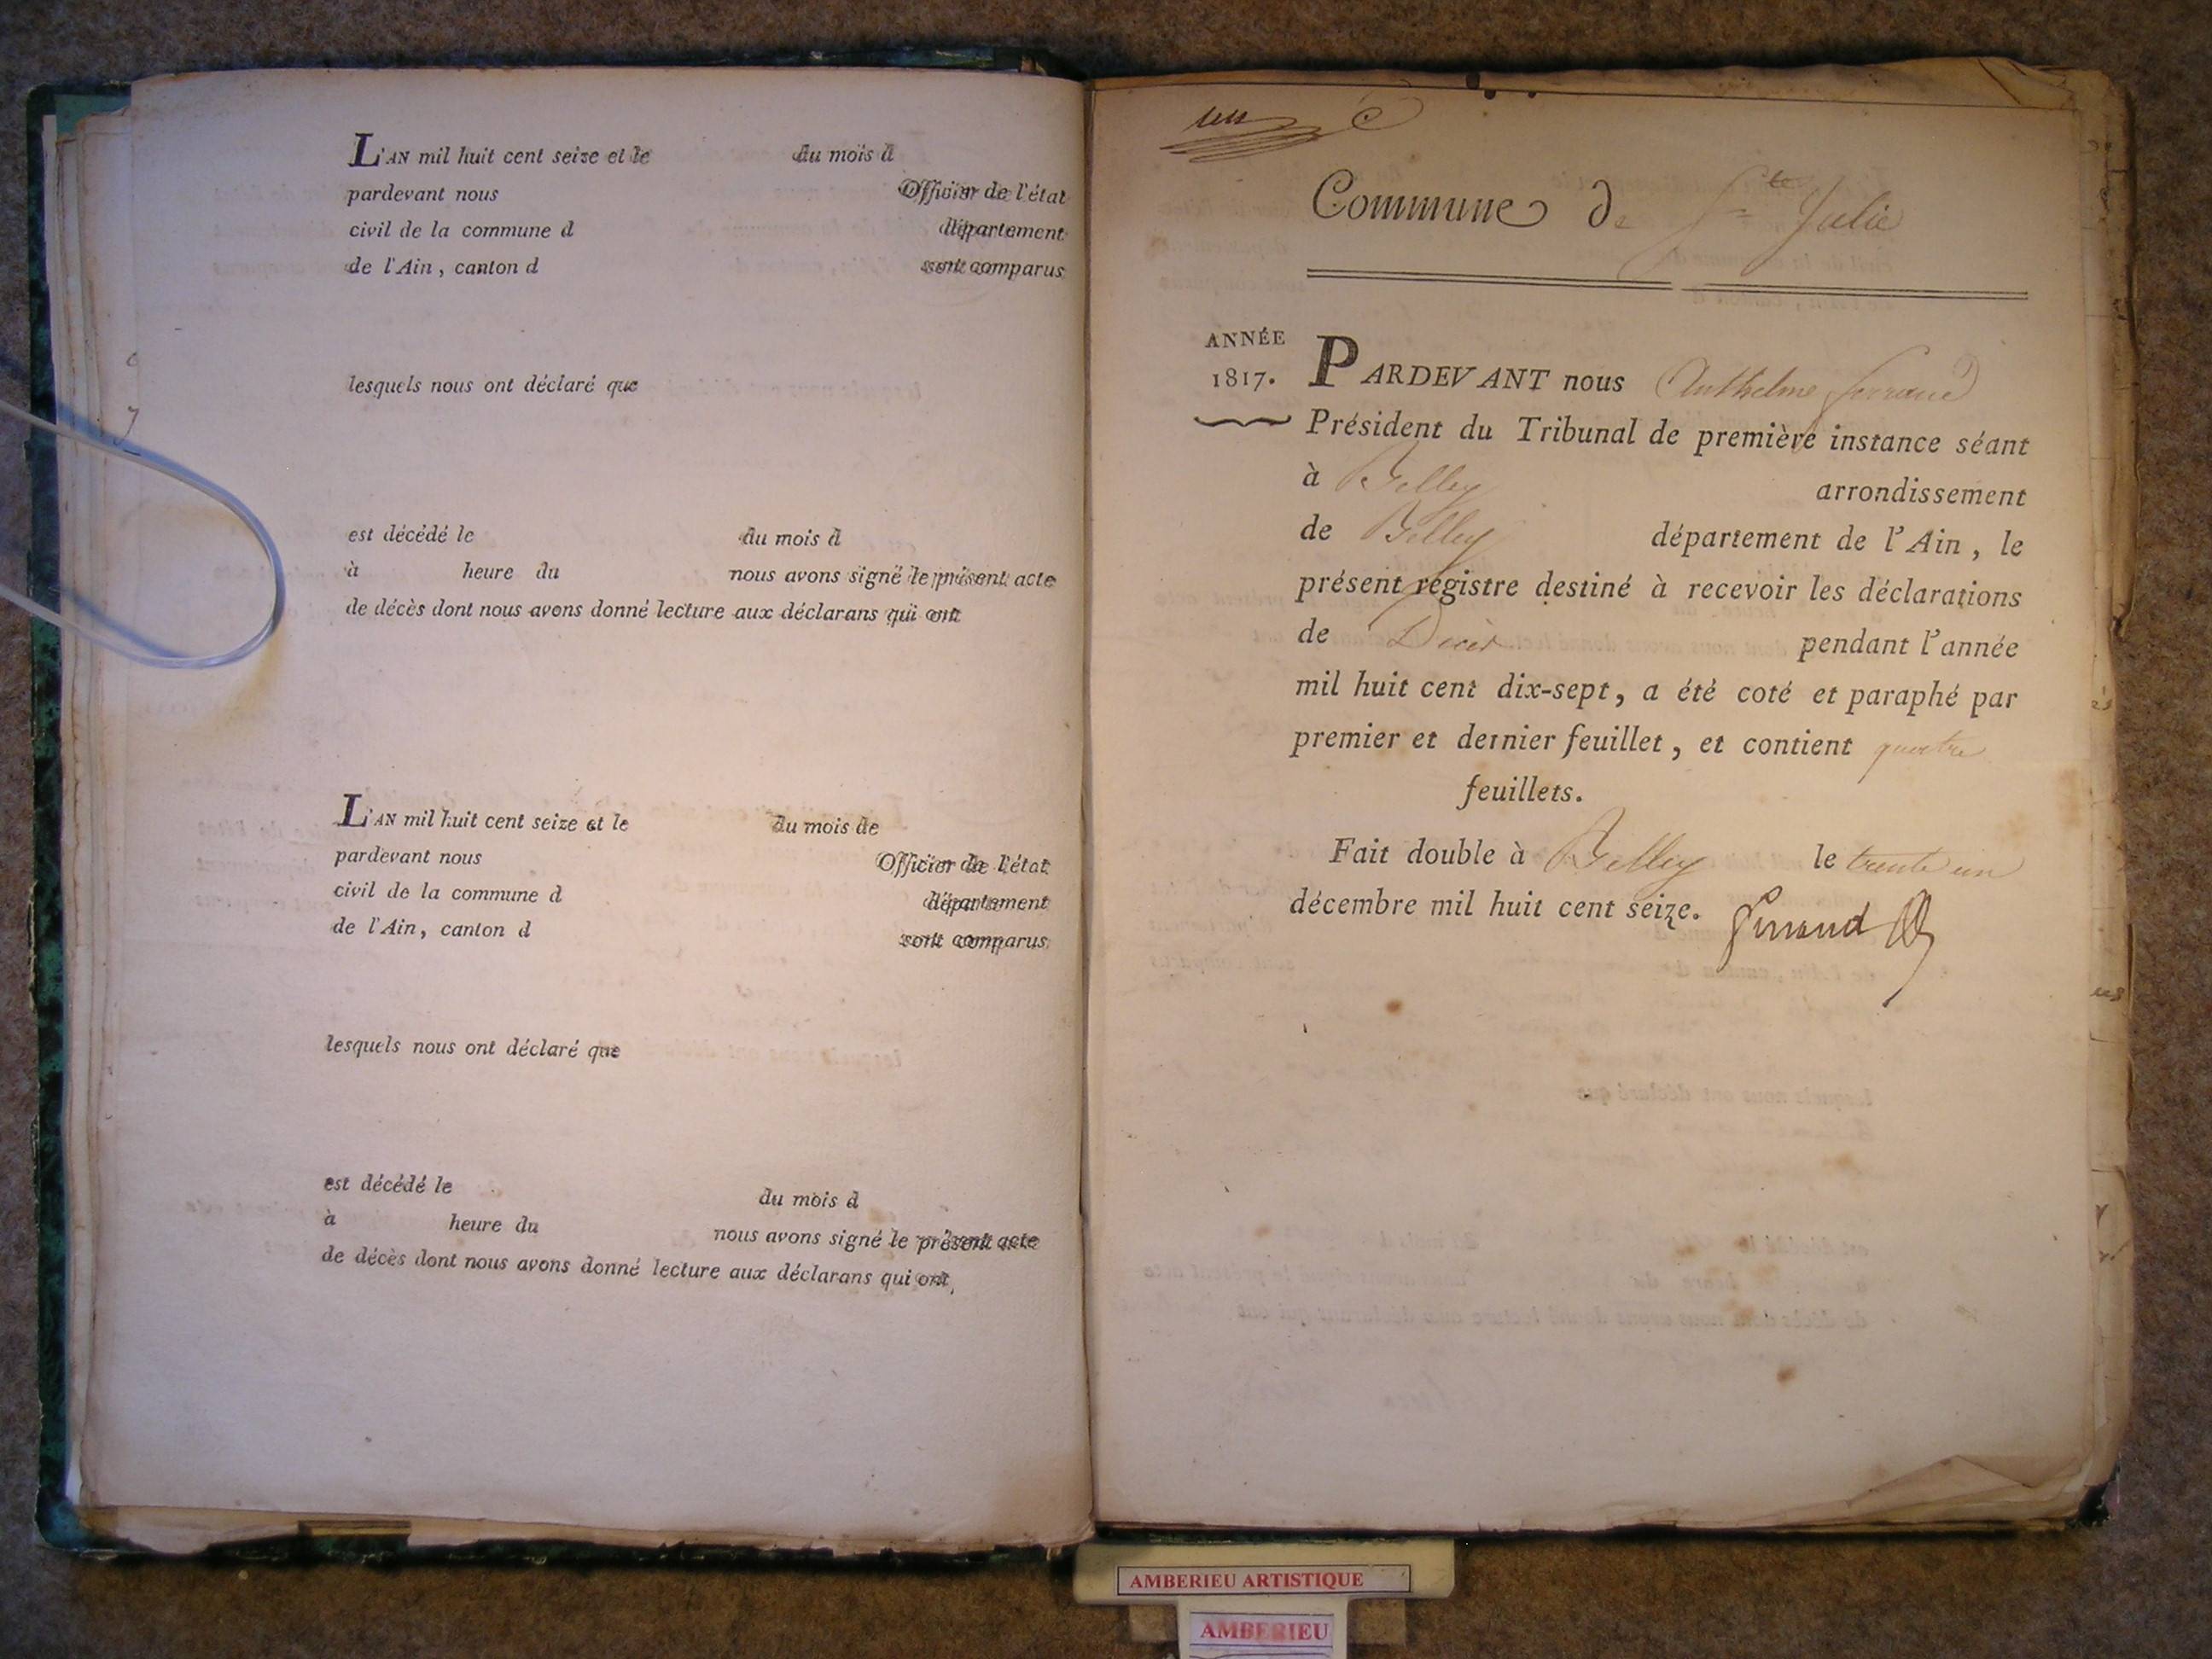 L'AN mil huit cent seize et le du mois d
pardevant nous Officier de l'état
civil de la commune d département
de l'Ain, canton d sont comparus
lesquels nous ont déclaré que
est décédé le du mois d
à heure du nous avons signé le présent acte
de décès dont nous avons donné lecture aux déclarans qui ont
L'AN mil huit cent seize et le du mois de
pardevant nous Officier de l'état
civil de la commune d département
de l'Ain, canton d sont comparus
lesquels nous ont déclaré que
est décédé le du mois d
à heure du nous avons signé le présent acte
de décès dont nous avons donné lecture aux déclarans qui ont
un
Commune de Ste Julie
ANNÉE
1817.
PARDEVANT nous Anthelme ferrand
Président du Tribunal de première instance séant
à Belley arrondissement
de Belley département de l'Ain, le
présent registre destiné à recevoir les déclarations
de Décès pendant l'année
mil huit cent dix-sept, a été coté et paraphé par
premier et dernier feuillet, et contient quatre
feuillets.
Fait double à Belley le trente un
décembre mil huit cent seize. ferrand
AMBERIEU ARTISTIQUE
AMBERIEU